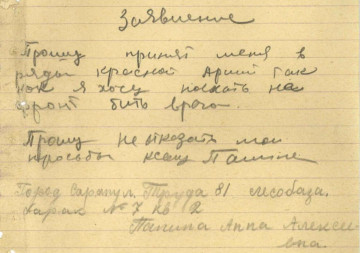 Заявление
Прошу принят меня в
ряды красной Армии так
как я хочу поехать на
фронт бить врага.
Прошу не отказать мои
просьбы
Город Сарапул. Труда 81 лесобаза.
барак № 7 кв 2
Папина Анна Алексе-
вна.